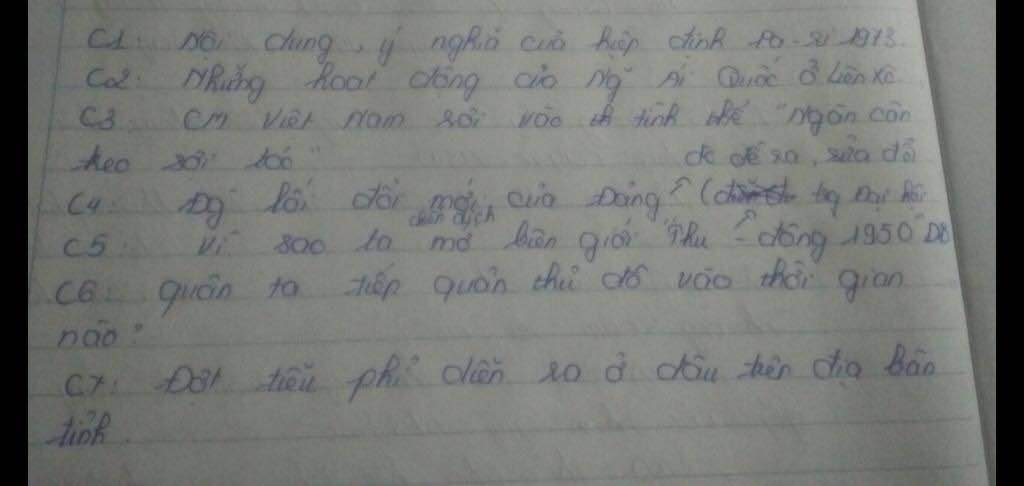 C1: Nội dung, ý nghĩa của hiệp định Pa-ri 1973
Ca2: Những hoạt động của Ng Ái Quốc ở Liên Xô
C3 CM Việt Nam rơi vào tình thế "Ngàn cân
treo sợi tóc" đc đề ra, sửa đổi
C4: Đg lối đổi mới của Đảng? ( tại Đại hội
chiến dịch
C5: Vì sao ta mở biên giới Thu - đông 1950?
C6: quân ta tiếp quản thủ đô vào thời gian
nào?
C7: Đợt tiễu phỉ diễn ra ở đâu trên địa bàn
tỉnh.